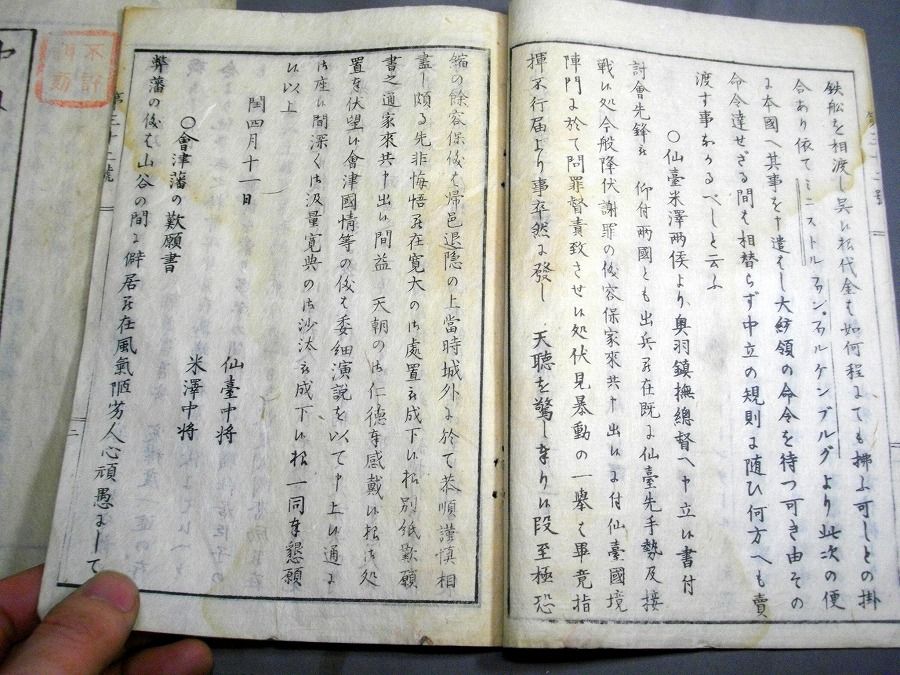 鉄舩を相渡し呉候ハヽ代金も如何程にても拂ふ可しとの掛
合あり依てミニストルフワン、フアルケンブルグより此次の便
ま本國へ其事を申遣はし大統領の命令を待つ可き由その
命令達せざる間も相替らず中立の規則ま随ひ何方へも賣
渡す事なかるべしと云ふ
○仙臺米澤両侯より奥羽鎮撫總督へ申立候書付
討會先鋒被仰付両國とも出兵罷在既ま仙臺先手勢及接
戦候処今般降伏謝罪の儀容保家來共申出候ま付仙臺國境
陣門ま於て問罪督責致させ候処伏見暴動の一舉も畢竟指
揮不行届より事卒然ま發し 天聴を驚し奉り候段至極恐
縮の餘容保儀も帰邑退隠の上當時城外ま於て恭順謹慎相
盡し頗る先非悔悟罷在寛大の御處置被成下候様別紙歎願
書之通家來共申出候間益 天朝の御仁德奉感戴候様御処
置を伏望候會津國情等の儀も委細演説を以て申上候通ま
御座候間深く御汲量寛典の御沙汰被成下候様一同奉懇願
候以上
閏四月十一日
仙臺中将
米澤中将
○會津藩の歎願書
弊藩の儀も山谷の間ま僻居罷在風氣陋劣人心頑愚 まして
第三十二號
二
不許